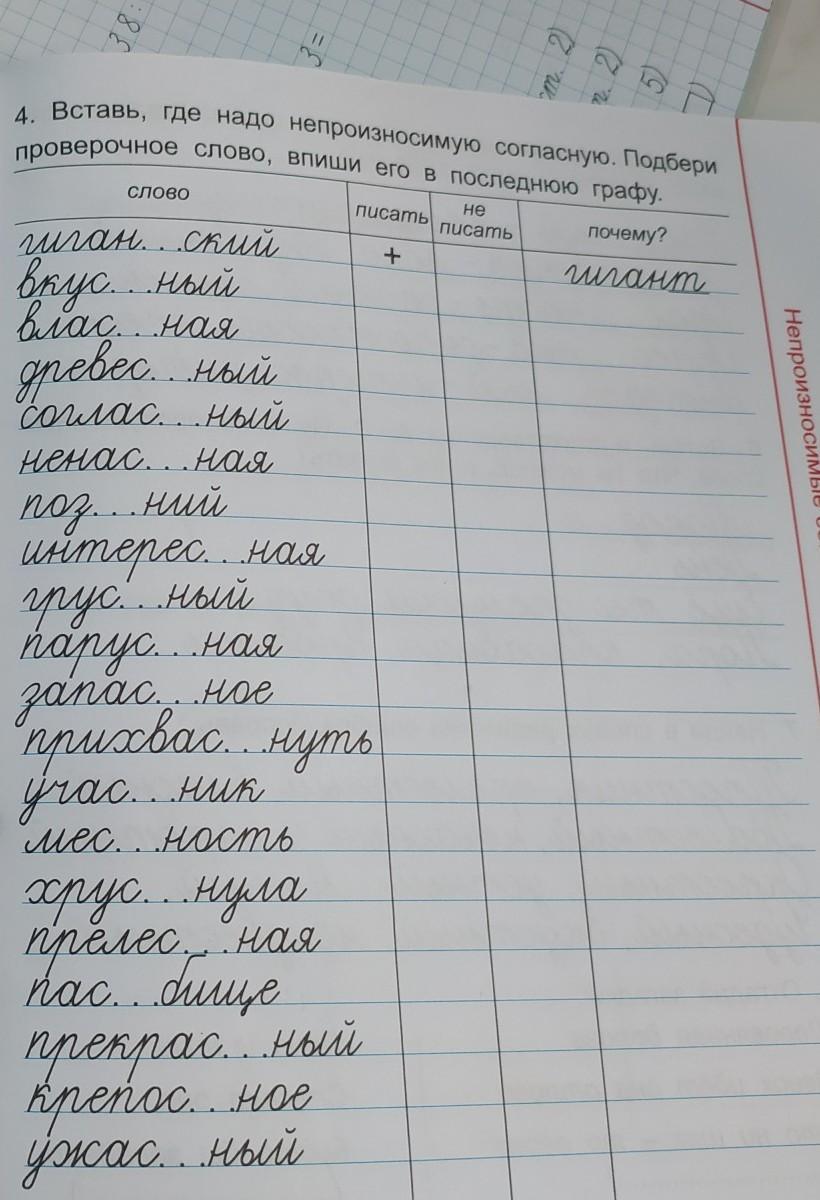 38:
3=
т. 2)
т. 2)
5)
7)
4. Вставь, где надо непроизносимую согласную. Подбери
проверочное слово, впиши его в последнюю графу.
слово писать не писать почему?
гиган. . .ский + гигант
вкус. . .ный
влас. . .ная
древес. . .ный
соглас. . .ный
ненас. . .ная
поз. . .ний
интерес. . .ная
грус. . .ный
парус. . .ная
запас. . .ное
прихвас. . .нуть
учас. . .ник
мес. . .ность
хрус. . .нула
прелес. . .ная
пас. . .бище
прекрас. . .ный
крепос. . .ное
ужас. . .ный
Непроизносимые